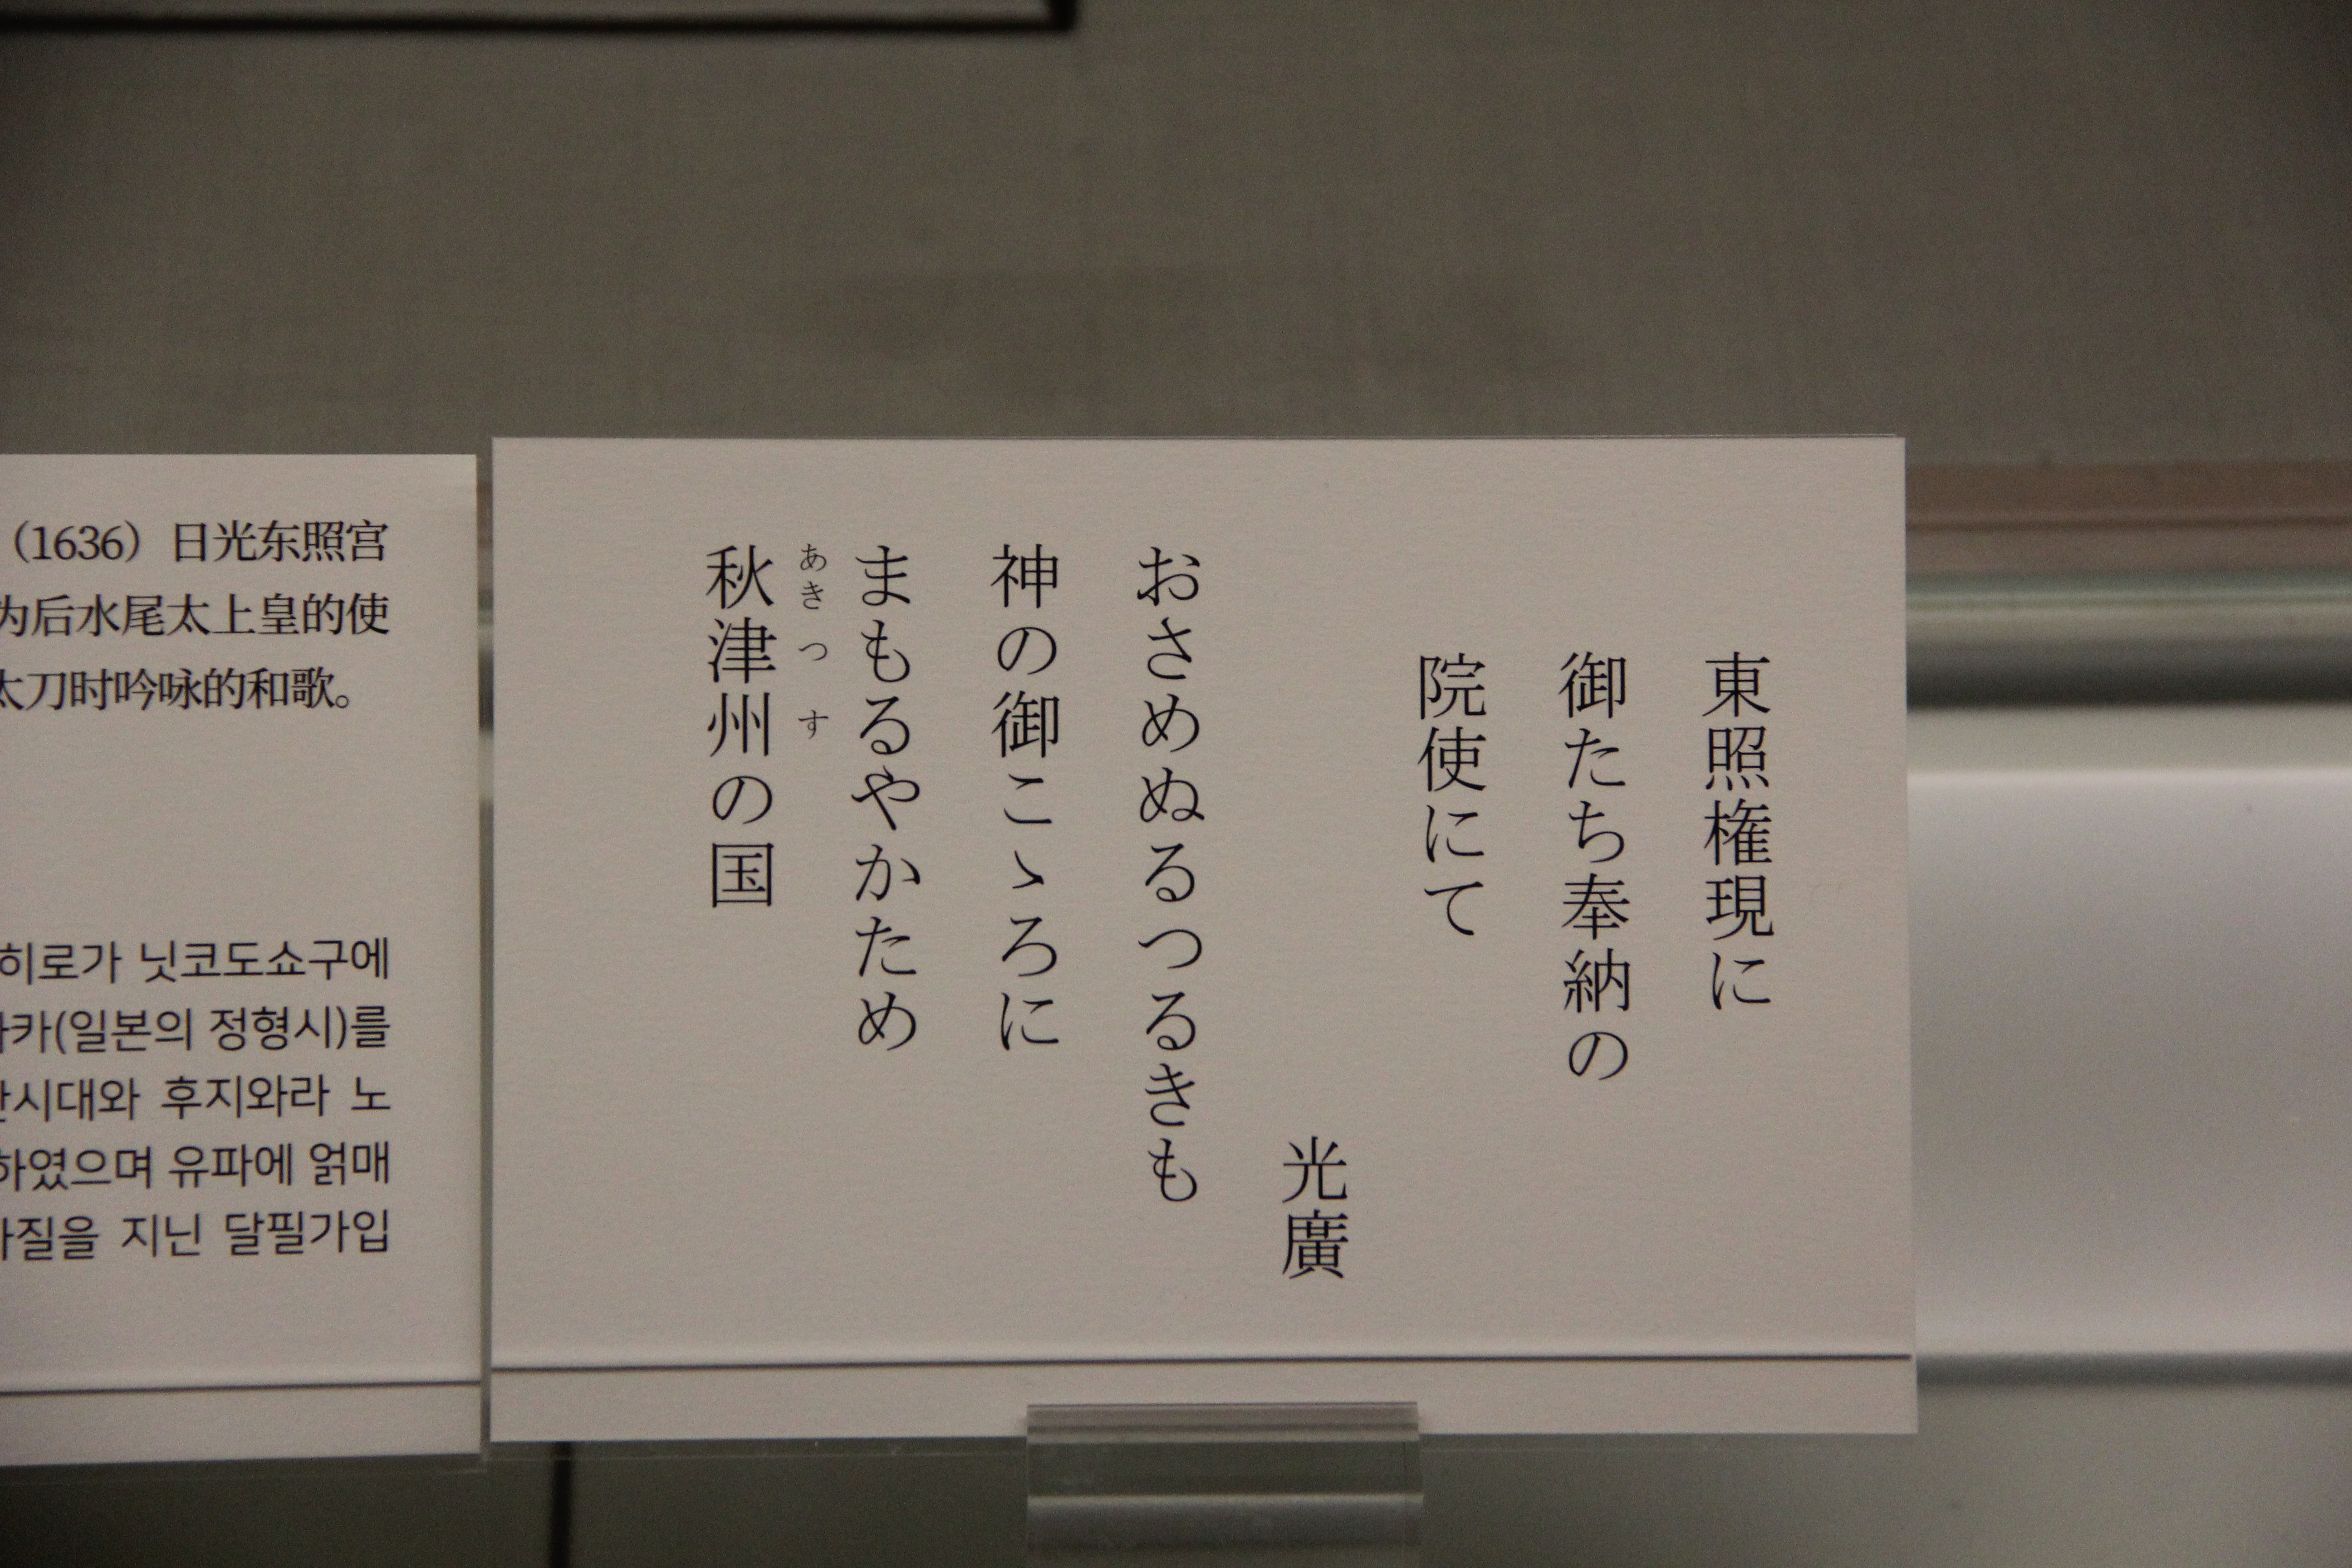 東照権現に
御たち奉納の
院使にて
光廣
おさめぬるつるきも
神の御こゝろに
まもるやかため
あきつす
秋津州の国
（1636）日光东照宫
为后水尾太上皇的使
太刀时吟咏的和歌。
히로가 닛코도쇼구에
카(일본의 정형시)를
시대와 후지와라 노
하였으며 유파에 얽매
질을 지닌 달필가입